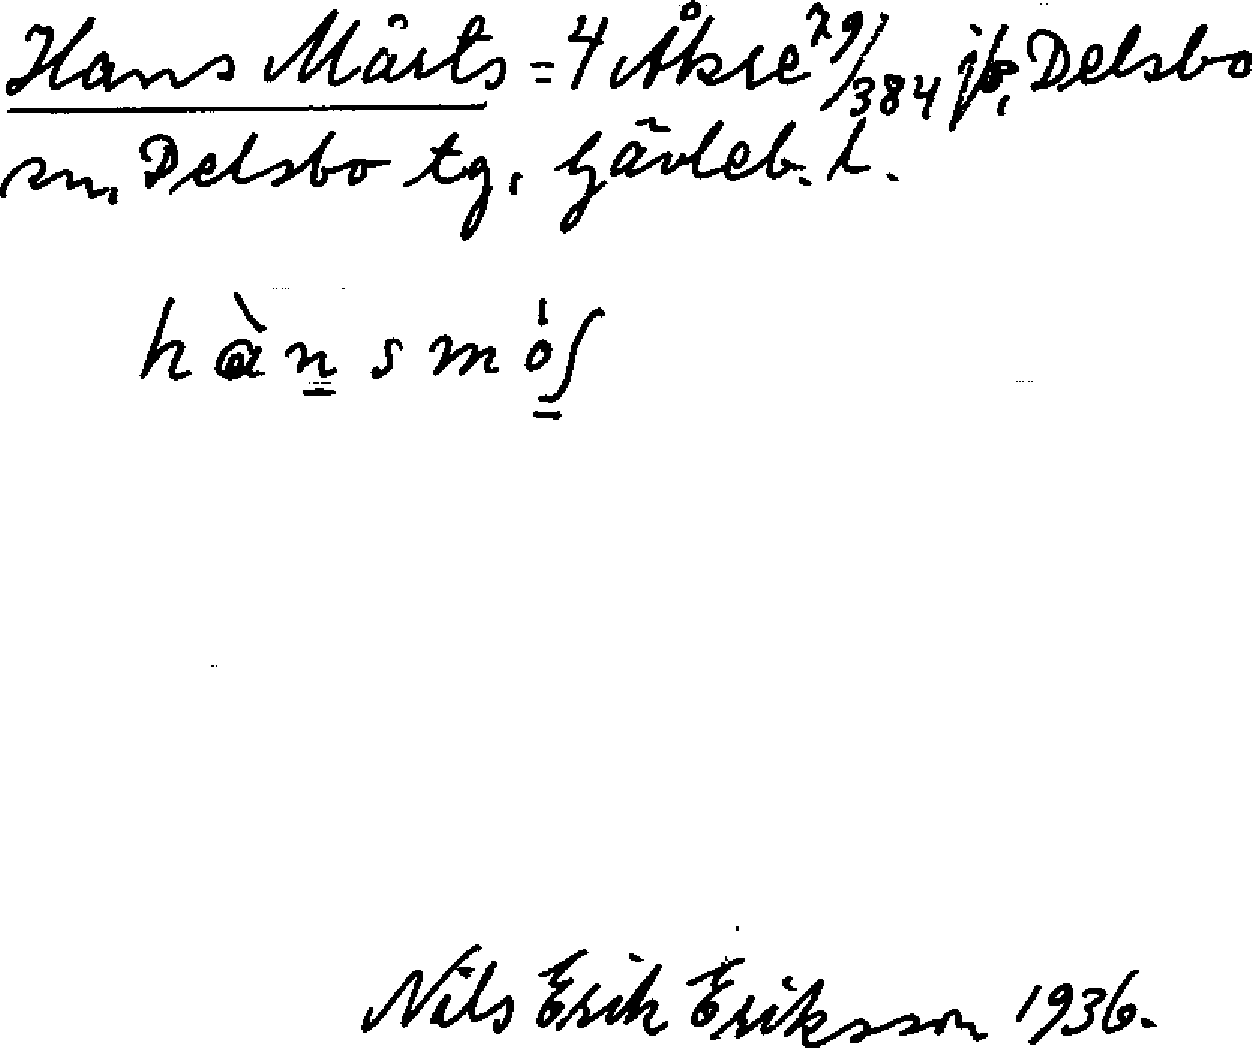 Hans Märts = 4 Åkre 29/384 jb, Delsbo
sn, Delsbo tg, Gävleb. l.
hànsmóʃ
Nils Erik Eriksson 1936.